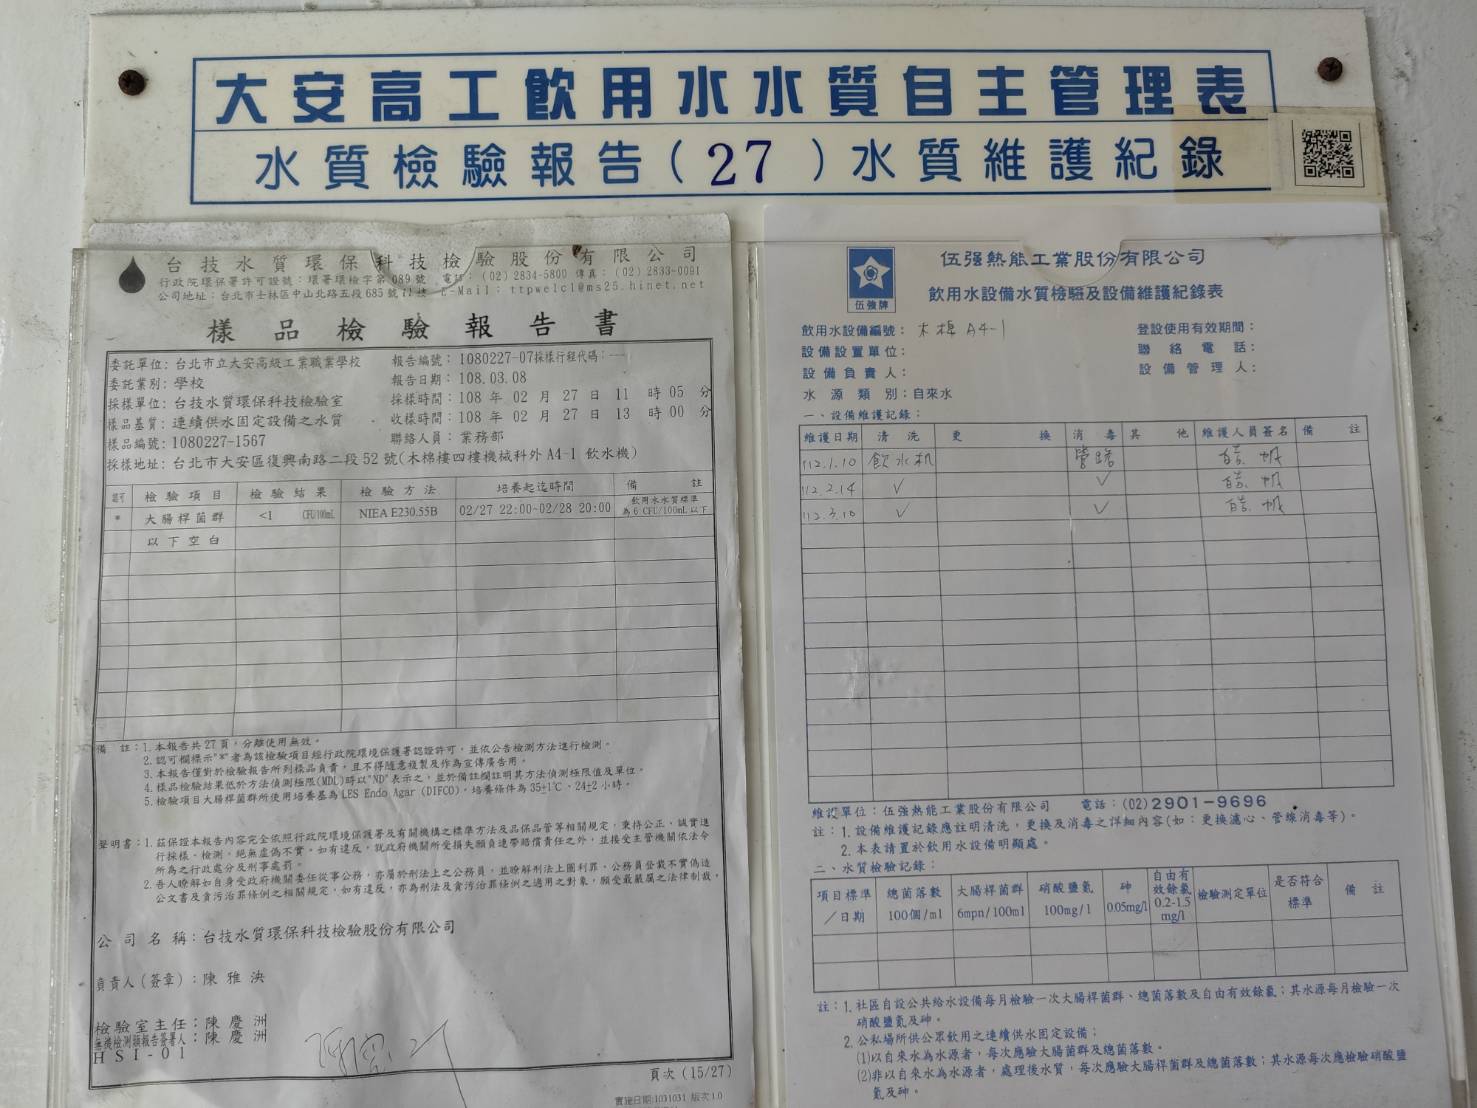 大安高工飲用水水質自主管理表
水質檢驗報告(27)水質維護紀錄
台技水質環保科技檢驗股份有限公司
行政院環保署許可證號：環署環檢字第089號 電話：(02)2834-5800 傳真：(02)2833-0091
公司地址：台北市士林區中山北路五段685號 E-Mail：ttpwelcl@ms25.hinet.net
樣品檢驗報告書
委託單位：台北市立大安高級工業職業學校 報告編號：1080227-07採樣行程代碼：---
委託業別：學校 報告日期：108.03.08
採樣單位：台技水質環保科技檢驗室 採樣時間：108 年 02 月 27 日 11 時 05 分
樣品基質：連續供水固定設備之水質 收樣時間：108 年 02 月 27 日 13 時 00 分
樣品編號：1080227-1567 聯絡人員：業務部
採樣地址：台北市大安區復興南路二段52號(木棉樓四樓機械科外A4-1 飲水機)
認可 檢驗項目 檢驗結果 檢驗方法 培養起迄時間 備註
* 大腸桿菌群 <1 CFU/100mL NIEA E230.55B 02/27 22:00~02/28 20:00 飲用水水質標準為6 CFU/100mL以下
以下空白
備註：1.本報告共27頁，分離使用無效。
2.認可欄標示"*"者為該檢驗項目經行政院環境保護署認證許可，並依公告檢測方法進行檢測。
3.本報告僅對於檢驗報告所列樣品負責，且不得隨意複製及作為宣傳廣告用。
4.樣品檢驗結果低於方法偵測極限(MDL)時以"ND"表示之，並於備註欄註明其方法偵測極限值及單位。
5.檢驗項目大腸桿菌群所使用培養基為LES Endo Agar (DIFCO)，培養條件為35±1℃、24±2小時。
聲明書：1.茲保證本報告內容完全依照行政院環境保護署及有關機構之標準方法及品保品管等相關規定，秉持公正、誠實進
行採樣、檢測。絕無虛偽不實。如有違反，就政府機關所受損失願負連帶賠償責任之外，並接受主管機關依法令
所為之行政處分及刑事處罰。
2.吾人瞭解如自身受政府機關委任從事公務，亦屬於刑法上之公務員，並瞭解刑法上圖利罪、公務員登載不實偽造
公文書及貪污治罪條例之相關規定，如有違反，亦為刑法及貪污治罪條例之適用之對象，願受最嚴厲之法律制裁。
公司名稱：台技水質環保科技檢驗股份有限公司
負責人(簽章)：陳雅泱
檢驗室主任：陳慶洲
無機檢測類報告簽署人：陳慶洲
HSI-01
頁次(15/27)
實施日期:1031031 版次1.0
伍強牌
伍強熱能工業股份有限公司
飲用水設備水質檢驗及設備維護紀錄表
飲用水設備編號：木棉 A4-1 登設使用有效期間：
設備設置單位： 聯絡電話：
設備負責人： 設備管理人：
水源類別：自來水
一、設備維護記錄：
維護日期 清洗 更換 消毒 其他 維護人員簽名 備註
112.1.10 飲水机 管路
112.2.14 ✓ ✓
112.3.10 ✓ ✓
維設單位：伍強熱能工業股份有限公司 電話：(02)2901-9696
註：1.設備維護記錄應註明清洗，更換及消毒之詳細內容(如：更換濾心、管線消毒等)。
2.本表請置於飲用水設備明顯處。
二、水質檢驗記錄：
項目標準／日期 總菌落數100個/ml 大腸桿菌群6mpn/100ml 硝酸鹽氮100mg/l 砷0.05mg/l 自由有效餘氯0.2-1.5mg/l 檢驗測定單位 是否符合標準 備註
註：1.社區自設公共給水設備每月檢驗一次大腸桿菌群、總菌落數及自由有效餘氯；其水源每月檢驗一次
硝酸鹽氮及砷。
2.公私場所供公眾飲用之連續供水固定設備；
(1)以自來水為水源者，每次應驗大腸菌群及總菌落數。
(2)非以自來水為水源者，處理後水質，每次應驗大腸桿菌群及總菌落數；其水源每次應檢驗硝酸鹽
氮及砷。